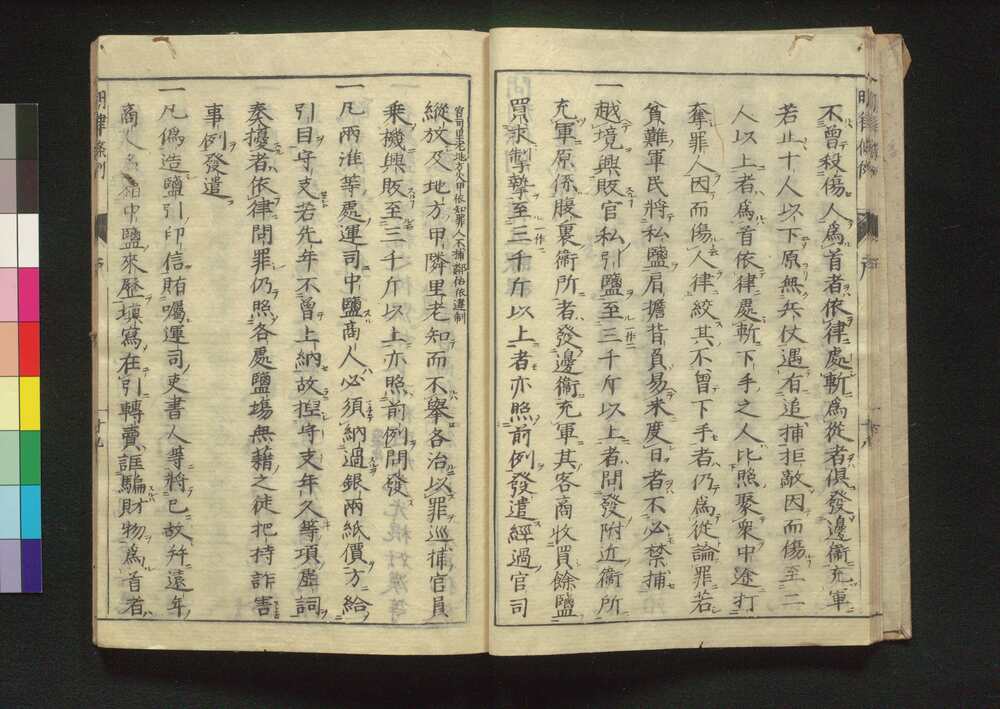 不曾殺傷人爲首者依律處斬爲從者俱發邊衛充軍
若止十人以下原無兵仗遇有追捕拒敵因而傷至二
人以上者爲首依律處斬下手之人比照聚衆中途打
奪罪人因而傷人律絞其不曾下手者仍爲從論罪若
貧難軍民將私鹽肩擔背負易米度日者不必禁捕
一越境興販官私引鹽至三千斤以上者問發附近衛所
充軍原係腹裏衛所者發邊衛充軍其客商收買餘鹽
買求掣摯至三千斤以上者亦照前例發遣經過官司
縱放及地方甲隣里老知而不舉各治以罪巡捕官員
官司里老地方火甲依知罪人不捕鄰佑依違制
乗機興販至三千斤以上亦照前例問發
一凡兩淮等處運司中鹽商人必須納過銀兩紙價方給
引目守支若先年不曾上納故捏守支年久等項虛詞
奏擾者依律問罪仍照各處鹽場無藉之徒把持詐害
事例發遣
一凡偽造鹽引印信賄囑運司吏書人等將已故幷遠年
商人名籍中鹽來歷塡寫在引轉賣誆騙財物爲首者
明律条例
十九